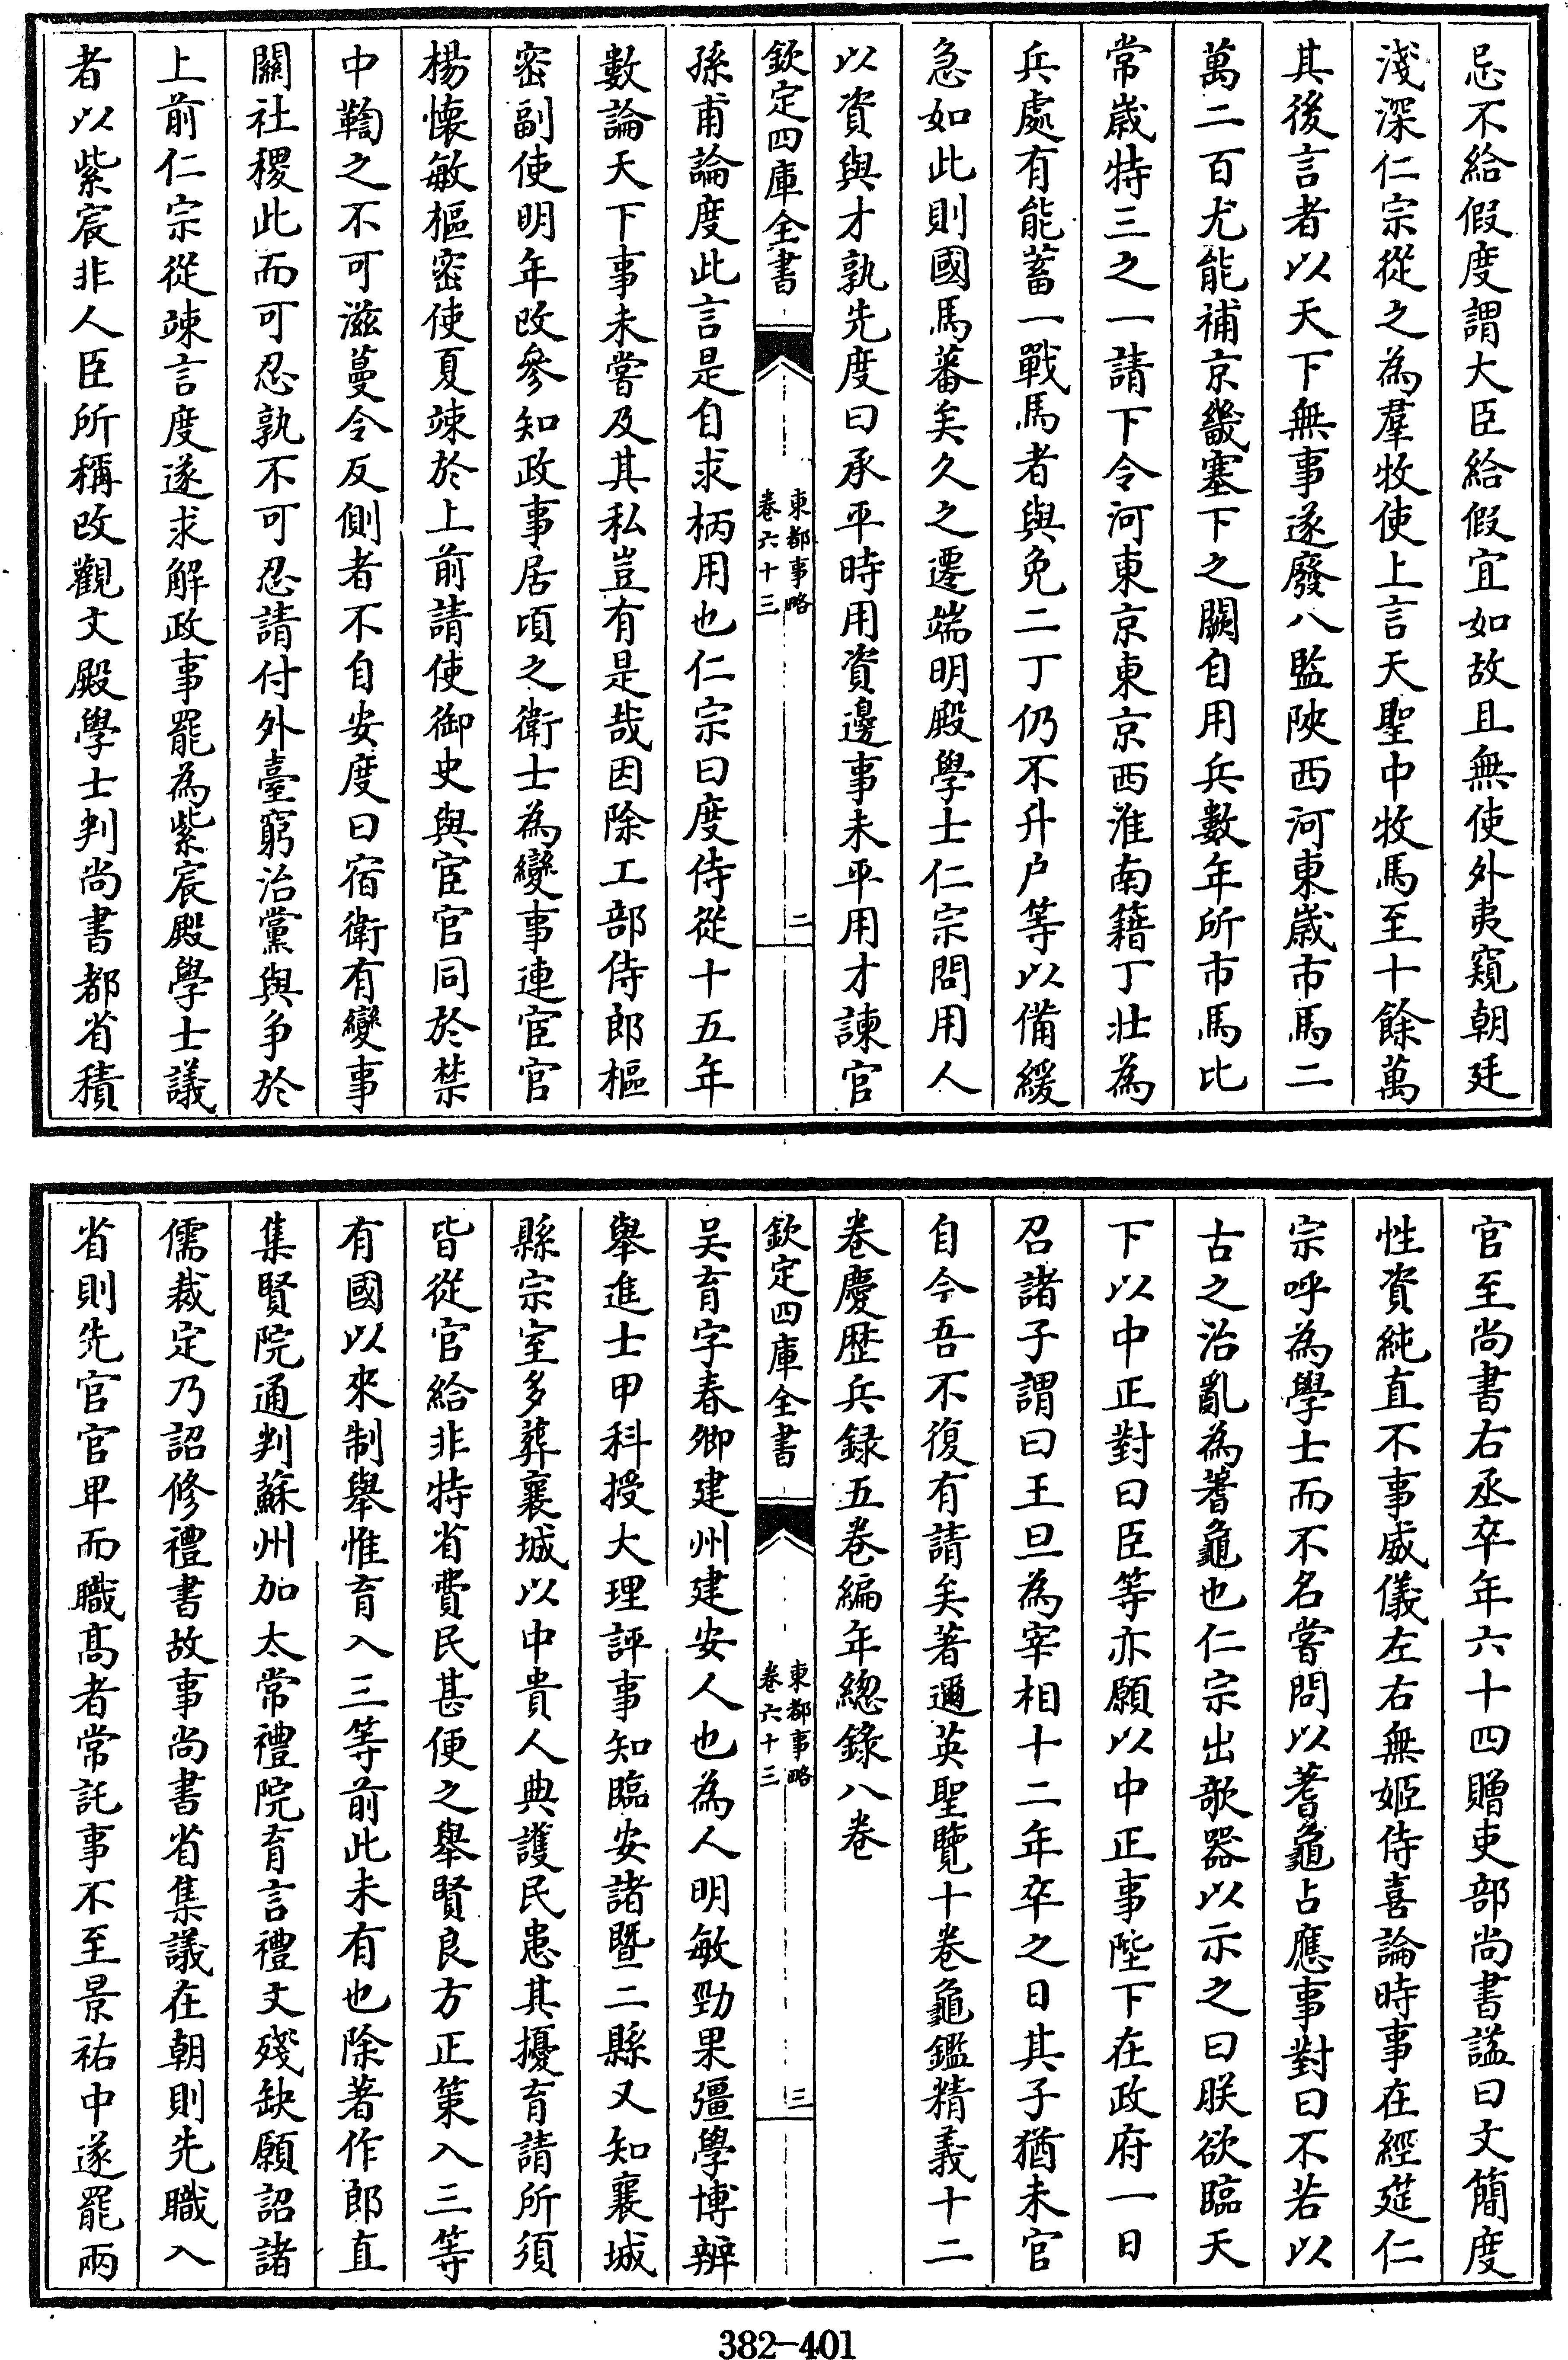 忌不給假度謂大臣給假宜如故且無使外夷窺朝廷
淺深仁宗從之為羣牧使上言天聖中牧馬至十餘萬
其後言者以天下無事遂廢八監陜西河東歲市馬二
萬二百尤能補京畿塞下之闕自用兵數年所市馬比
常歲特三之一請下令河東京東京西淮南籍丁壯為
兵處有能蓄一戰馬者與免二丁仍不升户等以備緩
急如此則國馬蕃矣久之遷端明殿學士仁宗問用人
以資與才孰先度曰承平時用資邊事未平用才諫官
欽定四庫全書
東都事略
卷六十三
二
孫甫論度此言是自求柄用也仁宗曰度侍從十五年
數論天下事未嘗及其私豈有是哉因除工部侍郎樞
密副使明年改參知政事居頃之衛士為變事連宦官
楊懷敏樞密使夏竦於上前請使御史與宦官同於禁
中鞫之不可滋蔓令反側者不自安度曰宿衛有變事
關社稷此而可忍孰不可忍請付外臺窮治黨與爭於
上前仁宗從竦言度遂求解政事罷為紫宸殿學士議
者以紫宸非人臣所稱改觀文殿學士判尚書都省積
官至尚書右丞卒年六十四贈吏部尚書諡曰文簡度
性資純直不事威儀左右無姬侍喜論時事在經筵仁
宗呼為學士而不名嘗問以蓍龜占應事對曰不若以
古之治亂為蓍龜也仁宗出欹器以示之曰朕欲臨天
下以中正對曰臣等亦願以中正事陛下在政府一日
召諸子謂曰王旦為宰相十二年卒之日其子猶未官
自今吾不復有請矣著邇英聖覽十卷龜鑑精義十二
卷慶歷兵録五卷編年總錄八卷
欽定四庫全書
東都事略
卷六十三
三
吴育字春卿建州建安人也為人明敏勁果彊學博辨
舉進士甲科授大理評事知臨安諸暨二縣又知襄城
縣宗室多葬襄城以中貴人典護民患其擾育請所須
皆從官給非特省費民甚便之舉賢良方正策入三等
有國以來制舉惟育入三等前此未有也除著作郎直
集賢院通判蘇州加太常禮院育言禮文殘缺願詔諸
儒裁定乃詔修禮書故事尚書省集議在朝則先職入
省則先官官卑而職髙者常託事不至景祐中遂罷兩
382-401